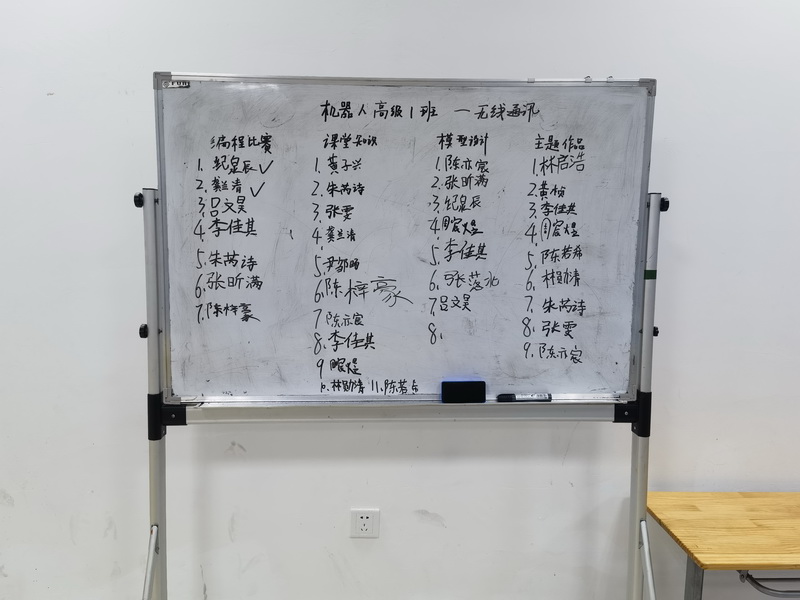 机器人高级1班 一无线通讯
编程比赛
1. 纪星辰✓
2. 龚兰清✓
3. 吕文昊
4. 李佳其
5. 朱芮诗
6. 张昕满
7. 陈梓豪
课堂知识
1. 黄子兴
2. 朱芮诗
3. 张雯
4. 龚兰清
5.
6. 陈梓豪
7 陈亦宸
8. 李佳其
9
10. 林勋清 11. 陈若
模型设计
1. 陈亦宸
2. 张昕满
3. 纪星辰
4. 周宸煜
5. 李佳其
6. 张落
7. 吕文昊
8.
主题作品
1. 林启浩
2. 黄桢
3. 李佳其
4. 周宸煜
5. 陈若希
6. 林勋清
7. 朱芮诗
8. 张雯
9. 陈亦宸